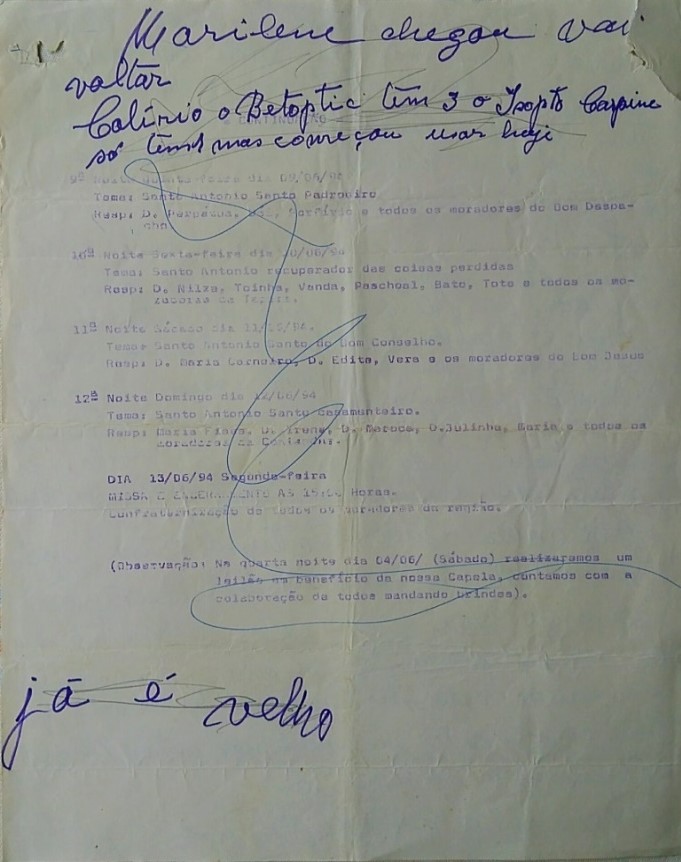 Marilene chegou vai
voltar
Colírio o Betoptic têm 3 o Isopto Carpine
só têm 1 mas começou usar hoje
CONTINUAÇÃO
9ª Noite Quinta-feira dia 09/06/94
Tema: Santo Antonio Santo Padroeiro
Resp: D. e todos os moradores do Bom Despa-
cho.
10ª Noite Sexta-feira dia 10/06/94
Tema: Santo Antonio recuperador das coisas perdidas
Resp: D. Nilza, Toinha, Vanda, Paschoal, Bato, Toto e todos os mo-
radores da
11ª Noite Sábado dia 11/06/94.
Tema: Santo Antonio Santo do Bom Conselho.
Resp: D. Maria Carneiro, D. Edite, Vera e os moradores do Bom Jesus
12ª Noite Domingo dia 12/06/94
Tema: Santo Antonio Santo casamenteiro.
Resp: Maria D. Irene, D. Maroca, D.Julinha, Maria e todos os
moradores da
DIA 13/06/94 Segunda-feira
MISSA E ENCERRAMENTO AS Horas.
Confraternização de todos os moradores da região.
(Observação: Na quarta noite dia 04/06/ (Sábado) realizaremos um
leilão em benefício da nossa Capela, contamos com a
colaboração de todos mandando brindes).
já é velho